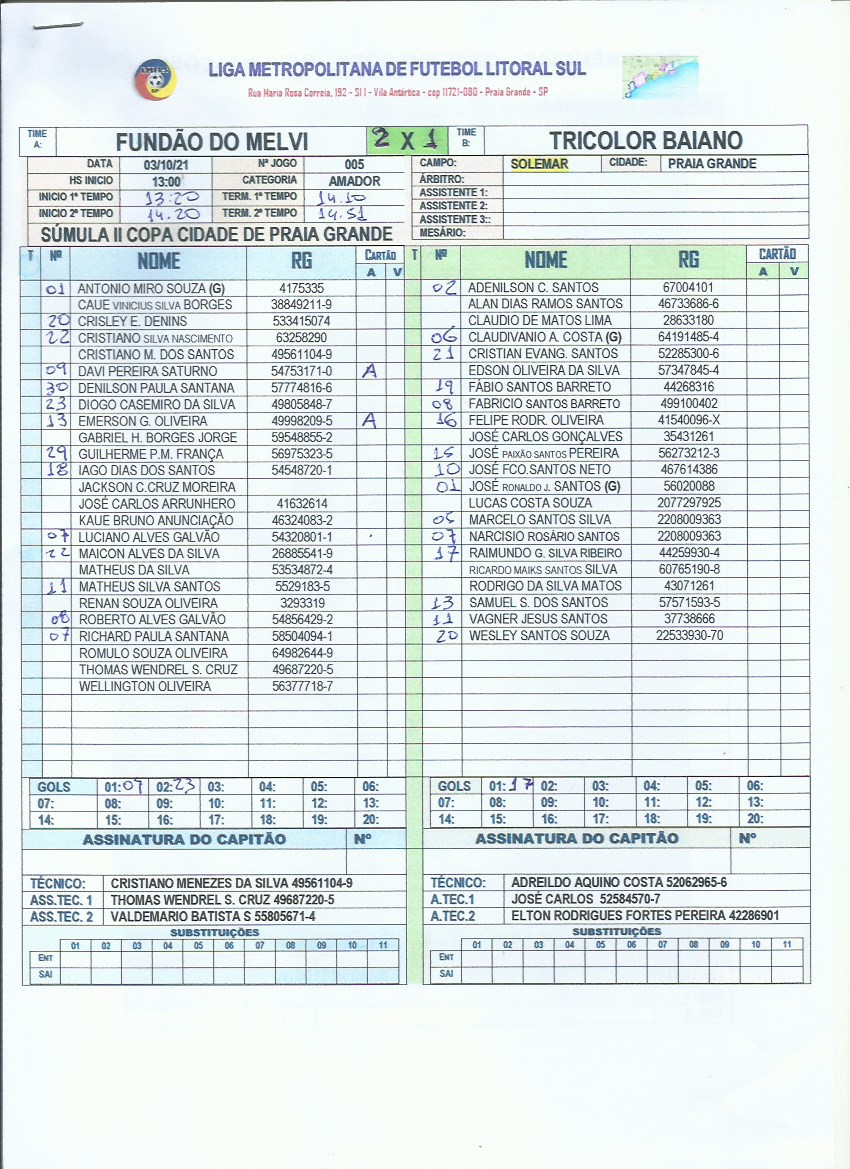 LIGA METROPOLITANA DE FUTEBOL LITORAL SUL
Rua Maria Rosa Correia, 192 - Sl 1 - Vila Antártica - cep 11721-080 - Praia Grande - SP
TIME A: FUNDÃO DO MELVI 2 X 1 TIME B: TRICOLOR BAIANO
DATA 03/10/21 Nº JOGO 005 CAMPO: SOLEMAR CIDADE: PRAIA GRANDE
HS INICIO 13:00 CATEGORIA AMADOR ÁRBITRO:
INICIO 1º TEMPO 13:20 TERM. 1º TEMPO 14.10 ASSISTENTE 1:
INICIO 2º TEMPO 14.20 TERM. 2º TEMPO 14.51 ASSISTENTE 2:
ASSISTENTE 3::
SÚMULA II COPA CIDADE DE PRAIA GRANDE MESÁRIO:
T Nº NOME RG CARTÃO A V T Nº NOME RG CARTÃO A V
01 ANTONIO MIRO SOUZA (G) 4175335 02 ADENILSON C. SANTOS 67004101
CAUE VINICIUS SILVA BORGES 38849211-9 ALAN DIAS RAMOS SANTOS 46733686-6
20 CRISLEY E. DENINS 533415074 CLAUDIO DE MATOS LIMA 28633180
22 CRISTIANO SILVA NASCIMENTO 63258290 06 CLAUDIVANIO A. COSTA (G) 64191485-4
CRISTIANO M. DOS SANTOS 49561104-9 21 CRISTIAN EVANG. SANTOS 52285300-6
09 DAVI PEREIRA SATURNO 54753171-0 A EDSON OLIVEIRA DA SILVA 57347845-4
30 DENILSON PAULA SANTANA 57774816-6 19 FÁBIO SANTOS BARRETO 44268316
23 DIOGO CASEMIRO DA SILVA 49805848-7 08 FABRICIO SANTOS BARRETO 499100402
13 EMERSON G. OLIVEIRA 49998209-5 A 16 FELIPE RODR. OLIVEIRA 41540096-X
GABRIEL H. BORGES JORGE 59548855-2 JOSÉ CARLOS GONÇALVES 35431261
29 GUILHERME P.M. FRANÇA 56975323-5 15 JOSÉ PAIXÃO SANTOS PEREIRA 56273212-3
18 IAGO DIAS DOS SANTOS 54548720-1 10 JOSÉ FCO.SANTOS NETO 467614386
JACKSON C.CRUZ MOREIRA 01 JOSÉ RONALDO J. SANTOS (G) 56020088
JOSÉ CARLOS ARRUNHERO 41632614 LUCAS COSTA SOUZA 2077297925
KAUE BRUNO ANUNCIAÇÃO 46324083-2 05 MARCELO SANTOS SILVA 2208009363
07 LUCIANO ALVES GALVÃO 54320801-1 07 NARCISIO ROSÁRIO SANTOS 2208009363
22 MAICON ALVES DA SILVA 26885541-9 17 RAIMUNDO G. SILVA RIBEIRO 44259930-4
MATHEUS DA SILVA 53534872-4 RICARDO MAIKS SANTOS SILVA 60765190-8
11 MATHEUS SILVA SANTOS 5529183-5 RODRIGO DA SILVA MATOS 43071261
RENAN SOUZA OLIVEIRA 3293319 13 SAMUEL S. DOS SANTOS 57571593-5
08 ROBERTO ALVES GALVÃO 54856429-2 11 VAGNER JESUS SANTOS 37738666
07 RICHARD PAULA SANTANA 58504094-1 20 WESLEY SANTOS SOUZA 22533930-70
ROMULO SOUZA OLIVEIRA 64982644-9
THOMAS WENDREL S. CRUZ 49687220-5
WELLINGTON OLIVEIRA 56377718-7
GOLS 01: 07 02: 23 03: 04: 05: 06: GOLS 01: 17 02: 03: 04: 05: 06:
07: 08: 09: 10: 11: 12: 13: 07: 08: 09: 10: 11: 12: 13:
14: 15: 16: 17: 18: 19: 20: 14: 15: 16: 17: 18: 19: 20:
ASSINATURA DO CAPITÃO Nº ASSINATURA DO CAPITÃO Nº
TÉCNICO: CRISTIANO MENEZES DA SILVA 49561104-9 TÉCNICO: ADREILDO AQUINO COSTA 52062965-6
ASS.TEC. 1 THOMAS WENDREL S. CRUZ 49687220-5 A.TEC.1 JOSÉ CARLOS 52584570-7
ASS.TEC. 2 VALDEMARIO BATISTA S 55805671-4 A.TEC.2 ELTON RODRIGUES FORTES PEREIRA 42286901
SUBSTITUIÇÕES SUBSTITUIÇÕES
01 02 03 04 05 06 07 08 09 10 11 01 02 03 04 05 06 07 08 09 10 11
ENT ENT
SAI SAI